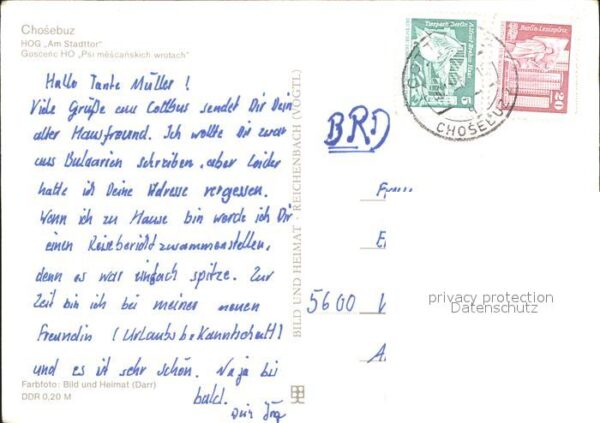 Chośebuz
HOG „Am Stadttor"
Gosćeńc HO „Psi měšćańskich wrotach"
Hallo Tante Müller!
Viele Grüße aus Cottbus sendet Dir Dein
alter Hausfreund. Ich wollte Dir zwar
aus Bulgarien schreiben, aber leider
hatte ich Deine Adresse vergessen.
Wenn ich zu Hause bin werde ich Dir
einen Reisebericht zusammenstellen,
denn es war einfach spitze. Zur
Zeit bin ich bei meiner neuen
Freundin (Urlaubsbekanntschaft)
und es ist sehr schön. Na ja bis
bald.
Dein Jörg
Farbfoto: Bild und Heimat (Darr)
DDR 0,20 M
BILD UND HEIMAT · REICHENBACH (VOGTL)
Tierpark Berlin
Alfred-Brehm-Haus
5
Berlin-Leninplatz
20
CHOŚEBUZ
BRD
5600
privacy protection
Datenschutz